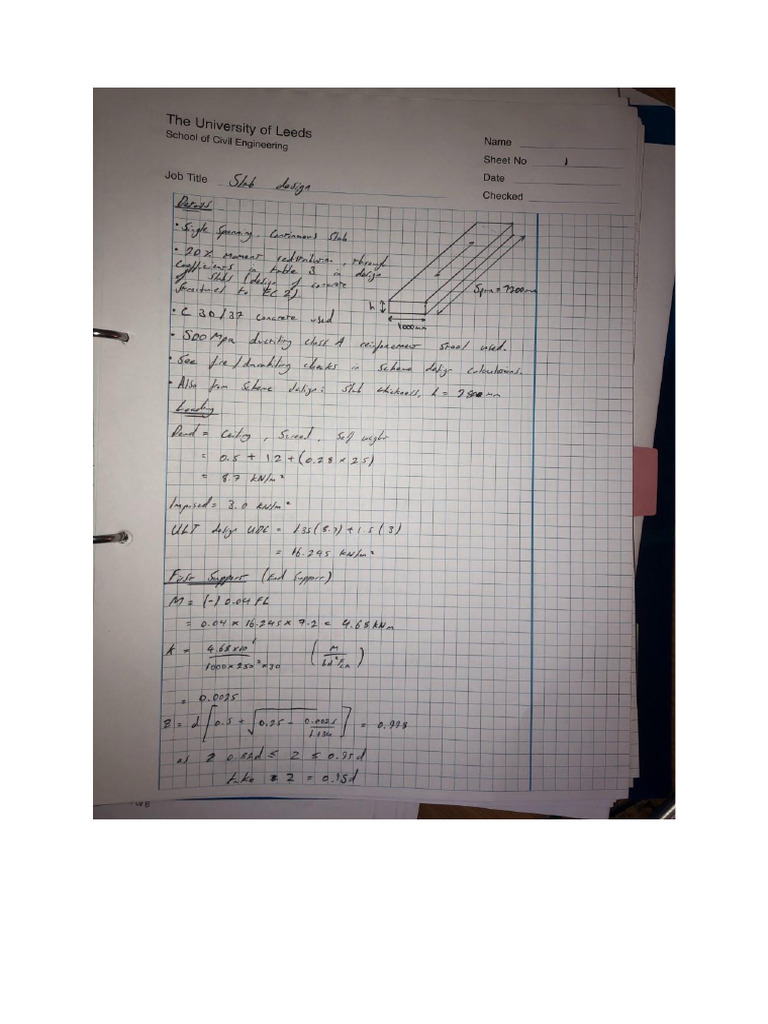 The University of Leeds
School of Civil Engineering
Name
Sheet No 1
Job Title Slab design
Date
Checked
Details
• Single Spanning, Continuous Slab
• 20% Moment redistribution, through
coefficients in table 3 in design
of slabs (design of concrete
structures to EC2)
h
1000mm
Span = 7200mm
• C 30/37 concrete used
• 500 Mpa ductility class A reinforcement steel used.
• See fire/durability checks in scheme design calculations.
• Also from scheme design: slab thickness, h = 280 mm
Loading
Dead = Ceiling, Screed, Self weight
= 0.5 + 1.2 + (0.28 × 25)
= 8.7 kN/m²
Imposed = 3.0 kN/m²
ULT design UDL = 1.35(8.7) + 1.5(3)
= 16.245 kN/m²
First Support (End Support)
M = (-) 0.04 FL
= 0.04 × 16.245 × 7.2 = 4.68 kNm
K = 4.68×10⁶ / 1000×250²×30 (M / bd²fck)
= 0.0025
Z = d[0.5 + √0.25 - 0.0025/1.134] = 0.998
as 0.82d ≤ Z ≤ 0.95d
take Z = 0.95d